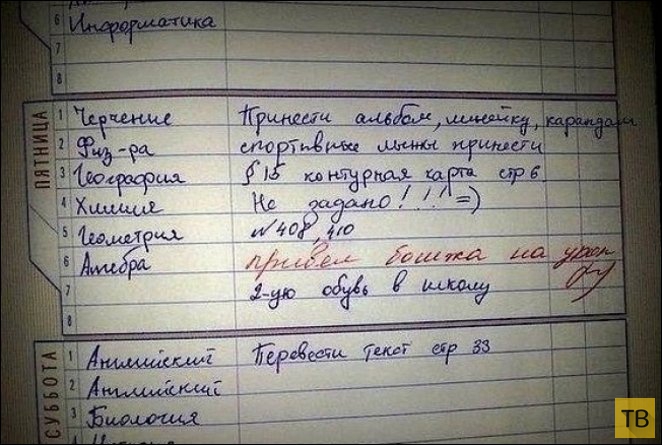 6 Информатика
7
8
ПЯТНИЦА
1 Черчение Принести альбом, линейку, карандаш
2 Физ-ра спортивные лыжы принести
3 География § 15 контурная карта стр 6
4 Химия Не задано!!!! =)
5 Геометрия №408, 410
6 Алгебра привёл бомжа на урок
7 2-ую обувь в школу
8
СУББОТА
1 Английский Перевести текст стр 33
2 Английский
3 Биология
ТВ